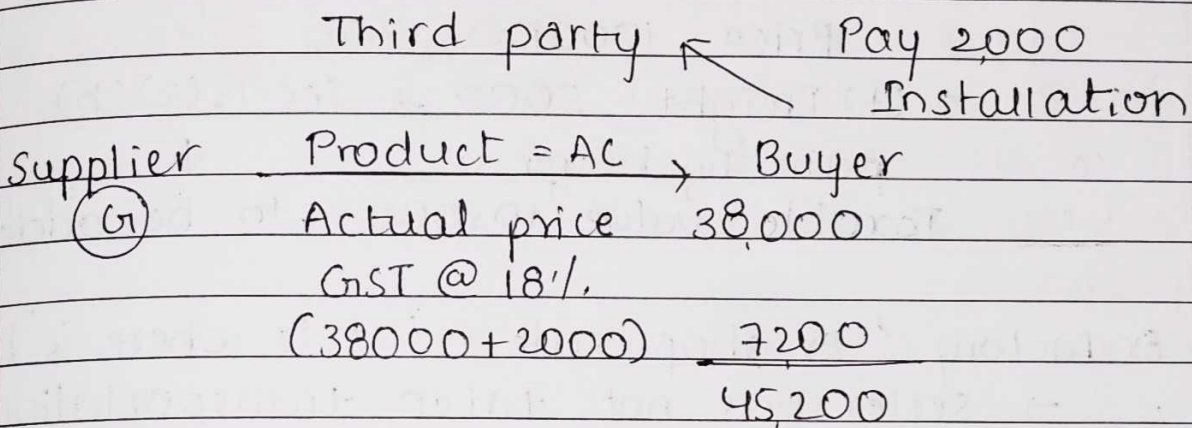 Third party Pay 2,000
Installation
Supplier Product = AC Buyer
G Actual price 38,000
GST @ 18%.
(38000+2000) 7200
45,200